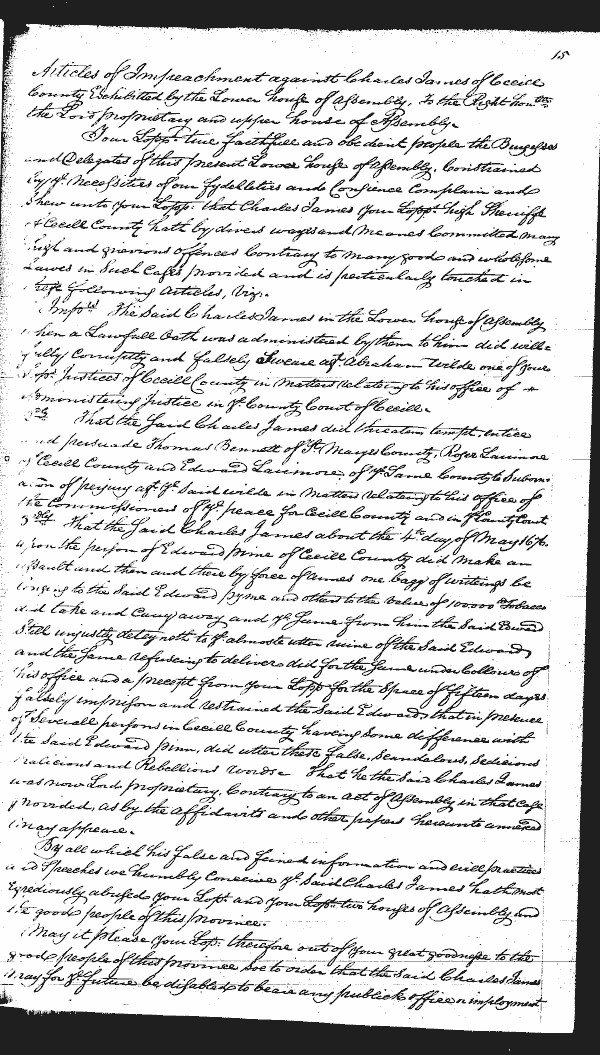 15
Articles of Impeachment against Charles James of Cecill
County Exhibitted by the Lower house of Assembly. To the Right honble
the Lord proprietary and upper house of Assembly.
Your Lopps true faithfull and obedient people the Burgesses
and Delegates of this present Lower house of Assembly, Constrained
by ye necessities of our fydelleties and Consience Complain and
Shew unto your Lopp: that Charles James your Lopps high Sherriffe
of Cecill County hath by divers wayes and Meanes Committed many
high and grievious offences Contrary to many good and wholesome
Lawes in Such Cases provided and is perticularly touched in
these following Articles, Viz:.
Imps The Said Charles James in the Lower house of Assembly
when a Lawfull Oath was administered by them to him did will=
fully Corruptly and falsely Sweare agt Abraham Wilde one of your
Lopps Justices of Cecill County in Matters relating to his office of
administering Justice in ye County Court of Cecill.
That the Said Charles James did threaten tempt, entice
and persuade Thomas Bennett of St Maryes County, Roger Larimore
of Cecill County and Edward Larimore, of ye Same County to Suborn
of perjury agt ye Said Wilde in Matters relating to his office of
the Commissioners of ye peace for Cecill County and in ye County Court
3dly That the Said Charles James about the 4th day of May 1676.
upon the person of Edward pinne of Cecill County did make an
assault and then and there by force of armes one bagg of writings be
longing to the Said Edward pyne and others to the value of 100000 Tobacco
did take and Carry away and ye Same from him the Said Edward
Still unjustly deteyneth to ye almost utter ruine of the Said Edward,
and the Same refuseing to deliver did for the Same under Collour of
his office and a precept from your Lopp for the Space of fifteen dayes
falsely imprison and restrained the Said Edward, that in presence
of Severall persons in Cecill County haveing Some difference with
the Said Edward pinn, did utter these false, Scandalous, Sedicious
malicious and Rebellious words That he the Said Charles James
was now Lord proprietary, Contrary to an act of Assembly in that Case
provided, as by the affidavits and other papers hereunto annexed
may appeare.
By all which his false and feined information and evill practices
and Speeches we humbly Conceive ye Said Charles James hath most
egrediously abused your Lopp and your Lopps two houses of Assembly and
the good people of this province.
May it please your Lopp: therefore out of your great goodnesse to the
good people of this province Soe to order that the Said Charles James
may for ye future be disabled to beare any publick office or imployment